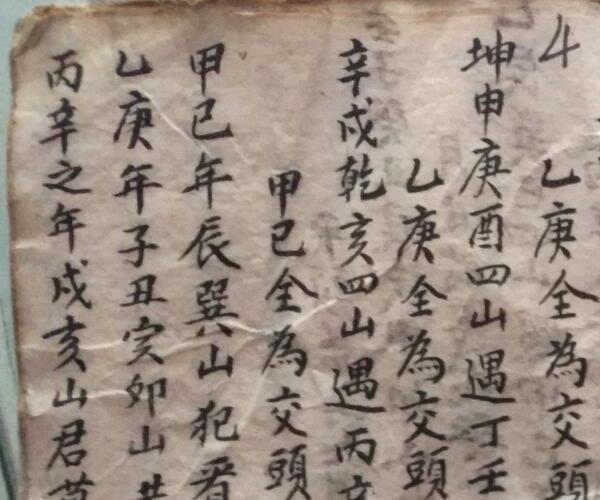 乙庚全為交頭
坤申庚酉四山遇丁壬
乙庚全為交頭
辛戍乾亥四山遇丙辛
甲己全為交頭
甲己年辰巽山犯
乙庚年子丑亥卯山
丙辛之年戍亥山君